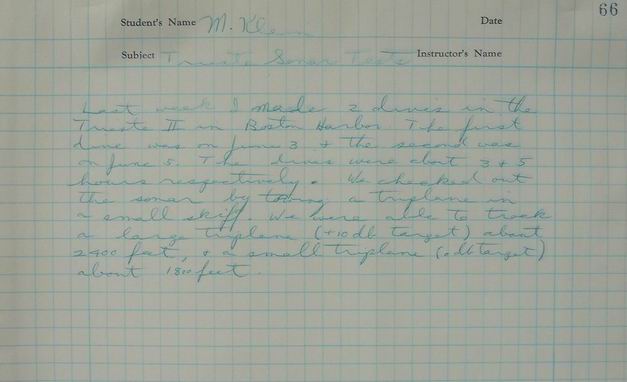 66
Student's Name M. Klein Date
Subject Trieste Sonar Tests Instructor's Name
Last week I made 2 dives in the
Trieste II in Boston Harbor The first
dive was on June 3 & the second was
on June 5. The dives were about 3 & 5
hours respectively. We checked out
the sonar by towing a triplane in
a small skiff. We were able to track
a large triplane (+10 db target) about
2400 feet, & a small triplane (0 db target)
about 1800 feet.